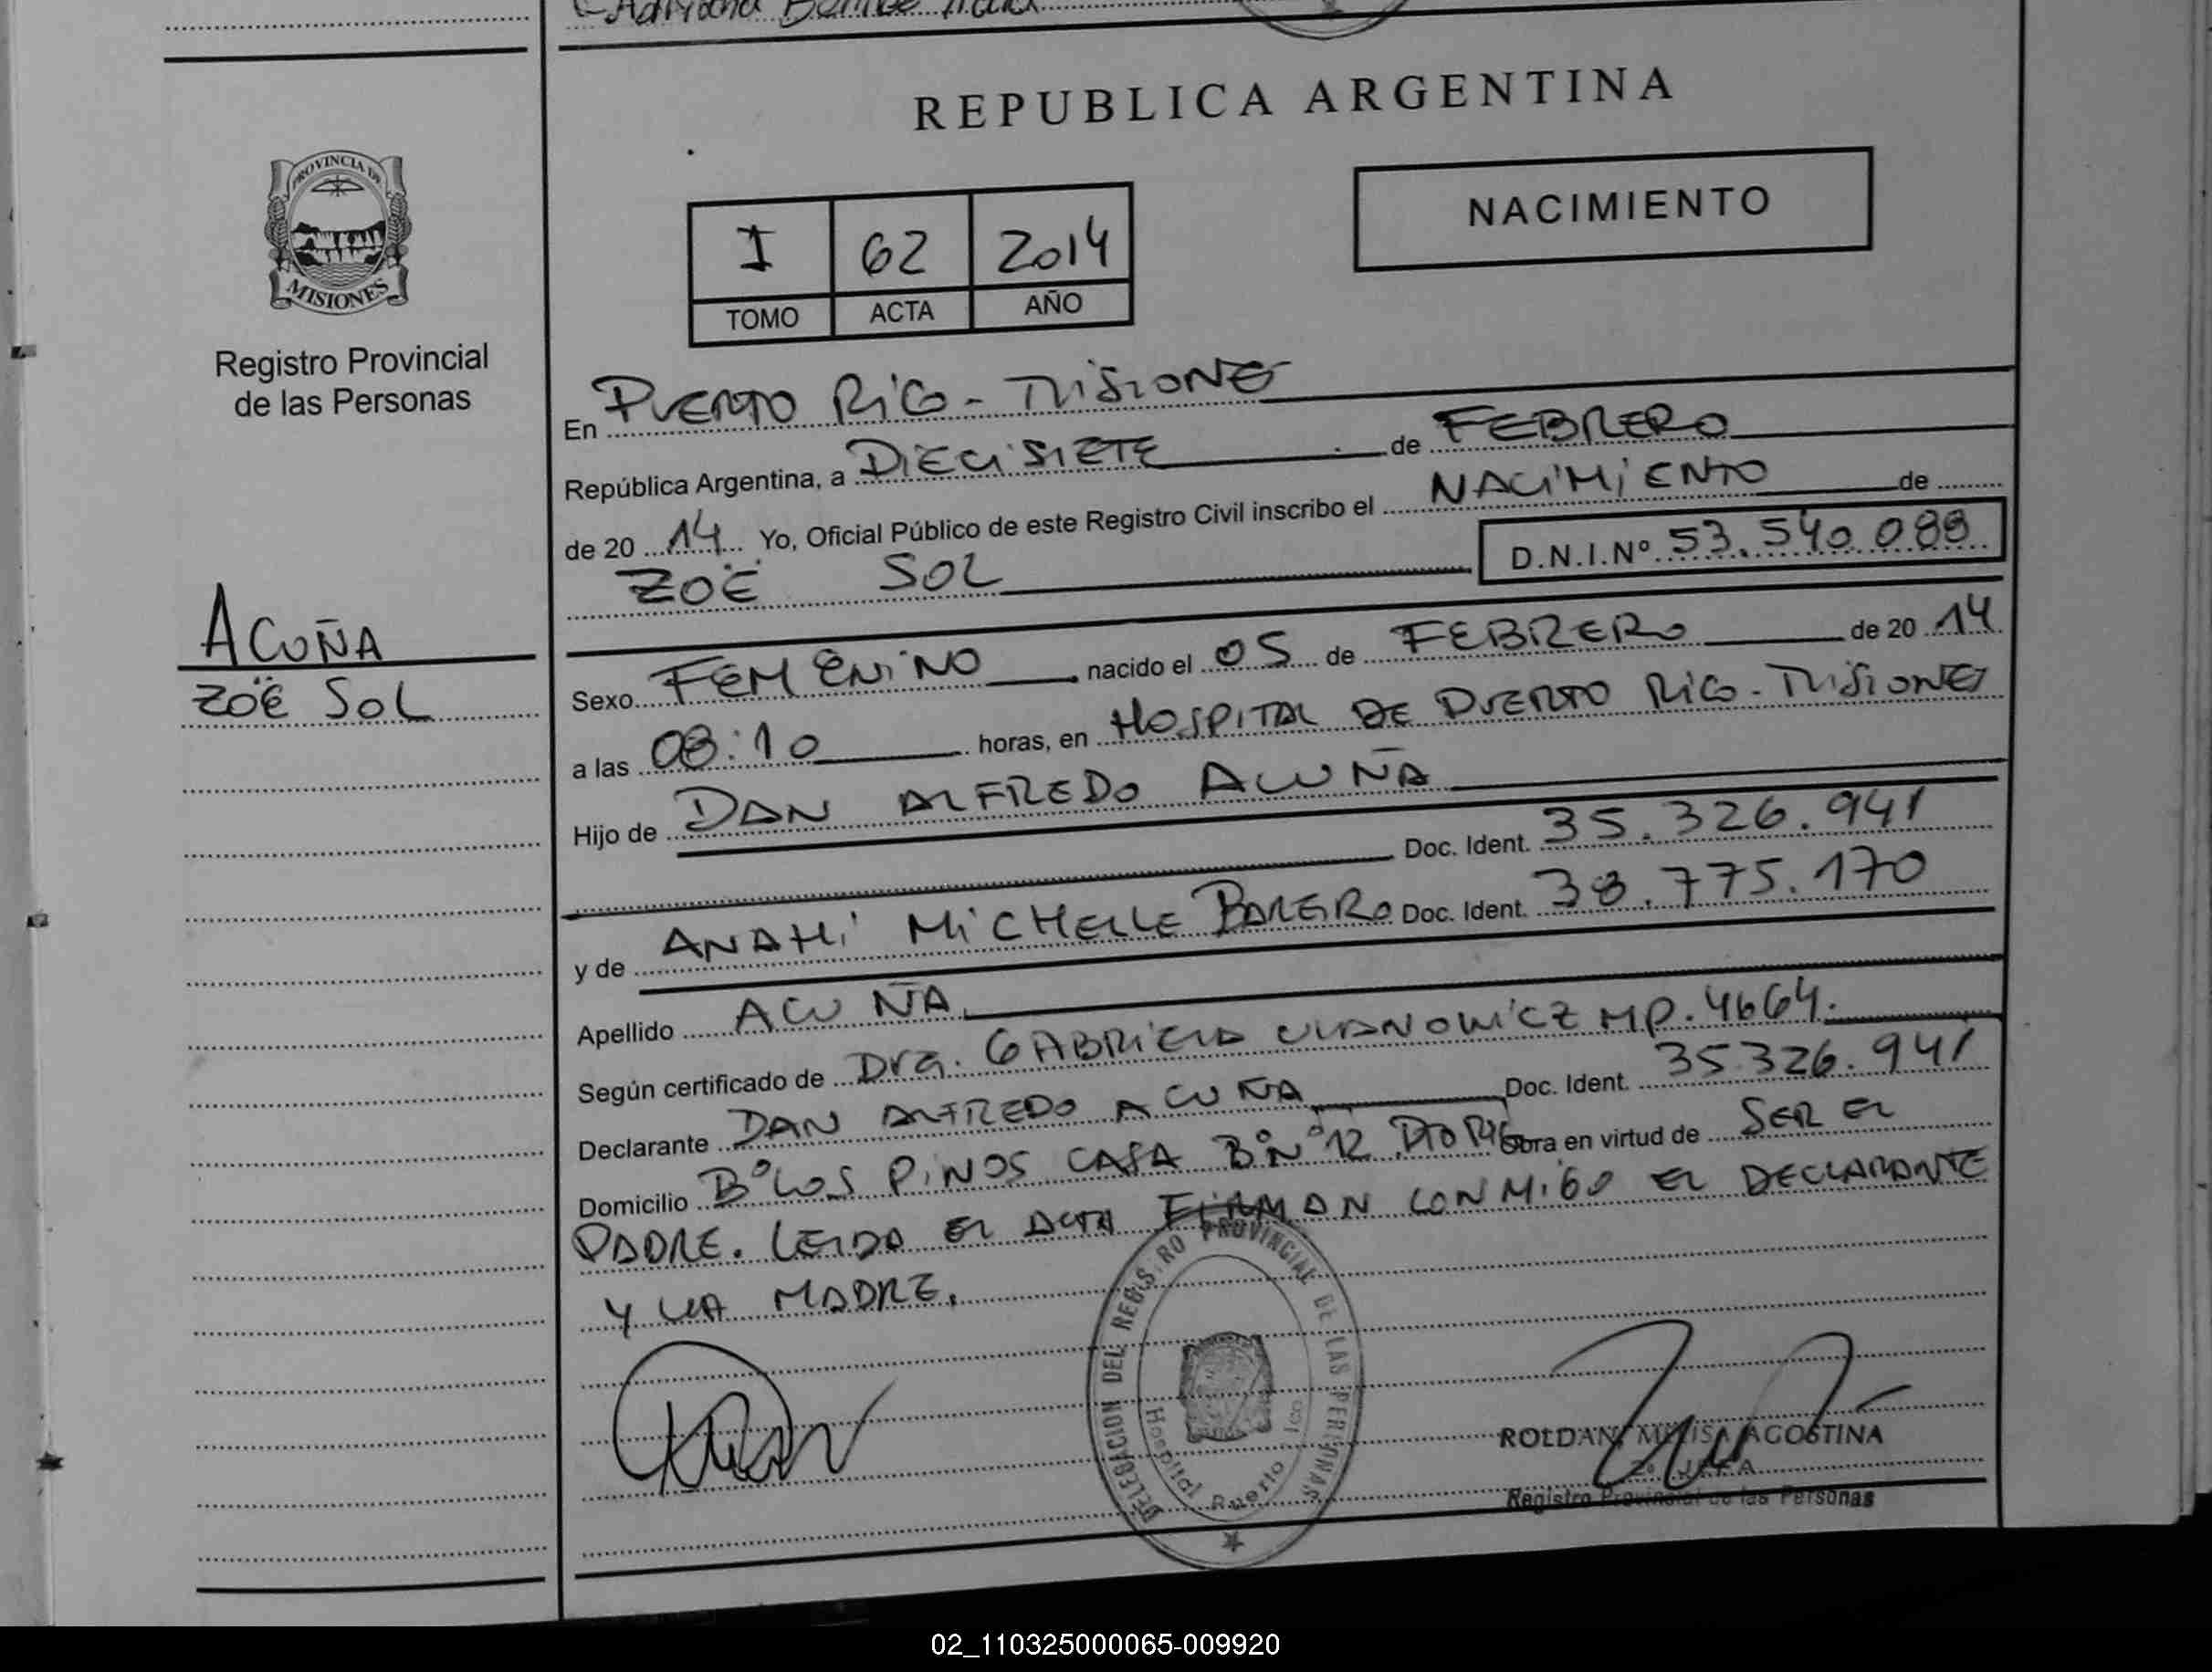 Adriana
REPUBLICA ARGENTINA
NACIMIENTO
PROVINCIA DE
MISIONES
Registro Provincial
de las Personas
I 62 2014
TOMO ACTA AÑO
En PUERTO RICO - MISIONES
República Argentina, a DIECISIETE de FEBRERO
de 20 14 Yo, Oficial Público de este Registro Civil inscribo el NACIMIENTO de
ZOË SOL D.N.I.Nº 53.540.089
ACUÑA
ZOË SOL
Sexo FEMENINO nacido el 05 de FEBRERO de 20 14
a las 08:10 horas, en HOSPITAL DE PUERTO RICO - MISIONES
Hijo de DAN ALFREDO ACUÑA
Doc. Ident. 35.326.941
y de ANAHI MICHELLE BAREIRO Doc. Ident. 38.775.170
Apellido ACUÑA
Según certificado de Dra. GABRIELA ULANOWICZ MP. 4664.
Declarante DAN ALFREDO ACUÑA Doc. Ident. 35.326.941
Domicilio Bº LOS PINOS CASA Nº 12 PTO RICO obra en virtud de SER EL
PADRE. LEIDA EL ACTA FIRMAN CONMIGO EL DECLARANTE
Y LA MADRE.
DELEGACION DEL REGISTRO PROVINCIAL DE LAS PERSONAS
Hospital Puerto Rico
ROLDAN, MELISA AGOSTINA
2º JEFA
Registro Provincial de las Personas
02_110325000065-009920